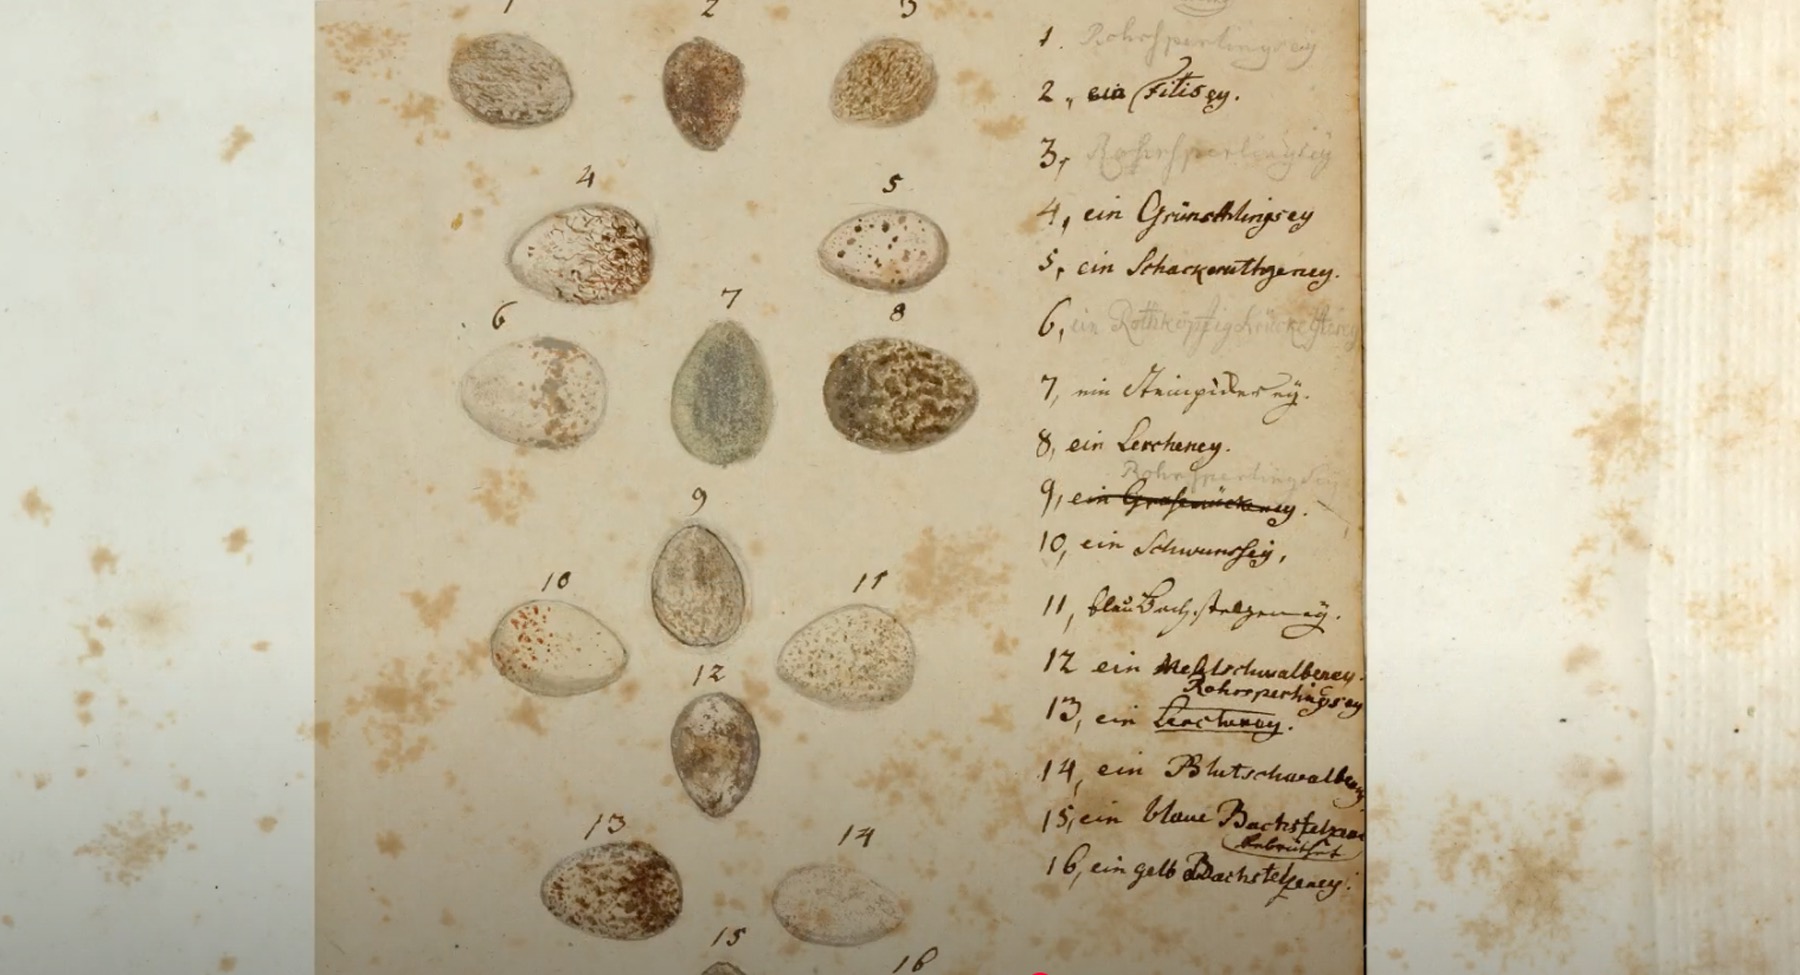 1 2 3
4 5
6 7 8
9
10 11
12
13 14
15 16
1. Rohrsperlingsey
2, ein Fitisey.
3, Rohrsperlingsey
4, ein Grünschlingsey
5,  ein
6, ein Rothköpfig
7, ein
8, ein Lercheney.
Rohrsperlingsey
9, ein Grasmückeney.
10, ein
11, blau Bachstelzeney.
12 ein Mehlschwalbeney.
Rohrsperlingsey
13, ein Lercheney.
14, ein Blutschwalbeney
15, ein blaue Bachstelzen
bebrütet
16, ein gelb Bachstelzeney.